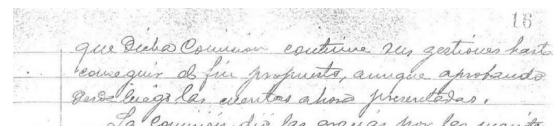 16
que Dicha Comision continue sus gestiones hasta
conseguir el fin propuesto, aunque aprobando
desde luego las cuentas ahora presentadas.
La Comision dió las gracias por las